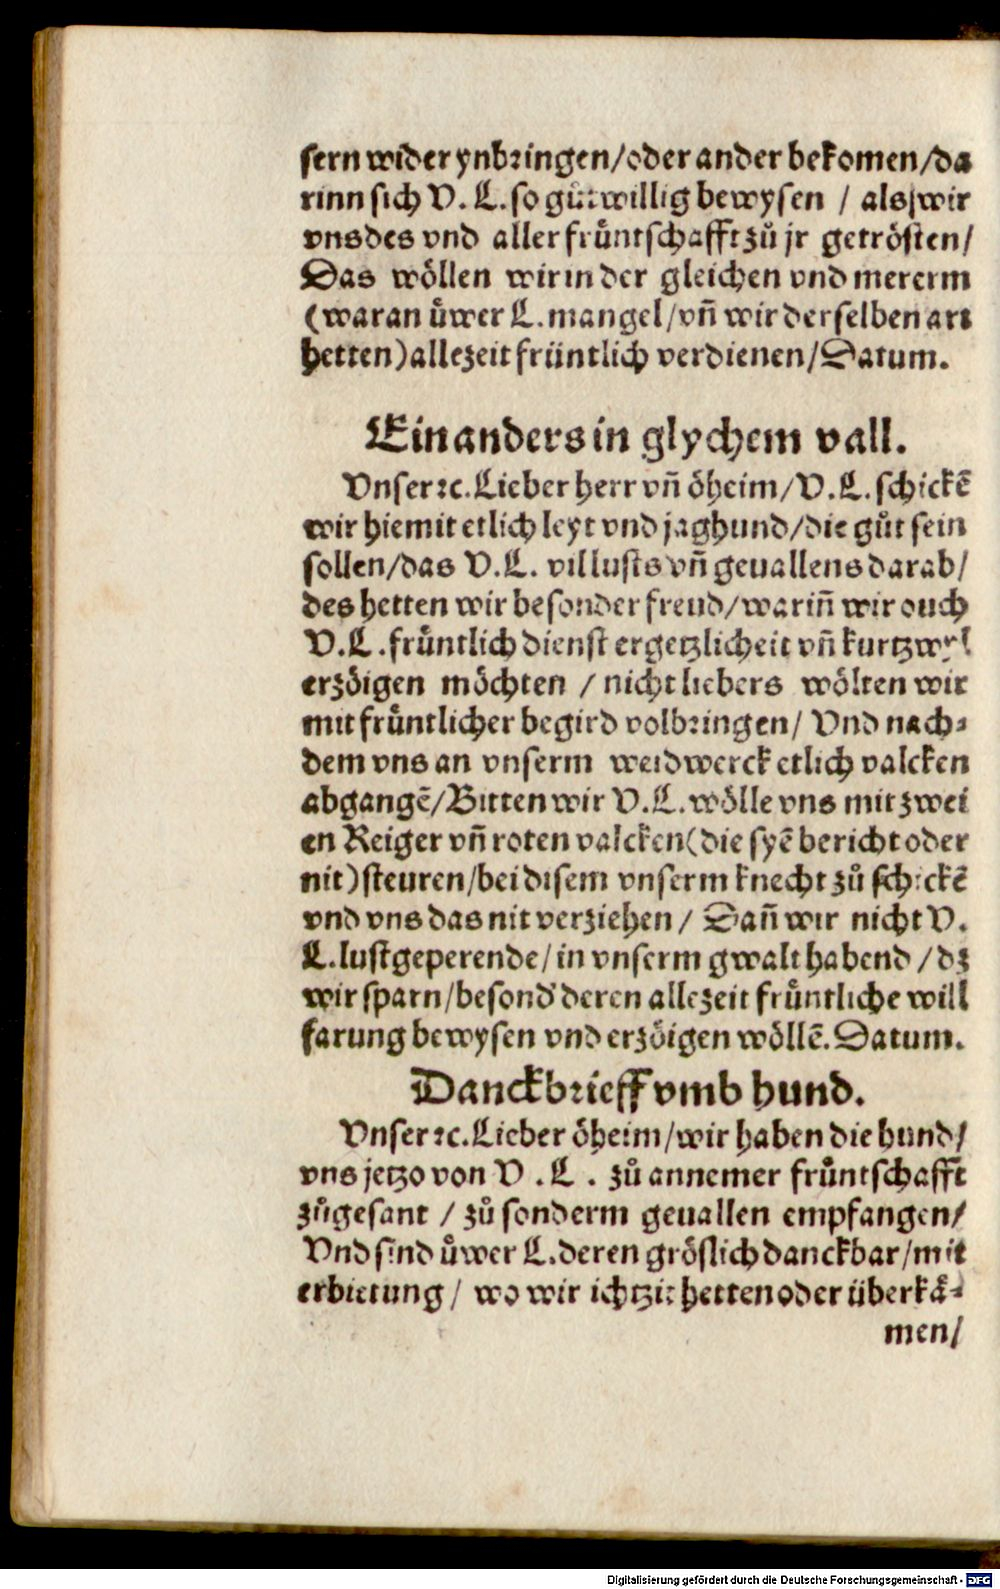 sern wider ynbringen/oder ander bekomen/da
rinn sich V. L. so gůtwillig bewysen / als wir
vns des vnd aller frůntschafft zů jr getrösten/
Das wöllen wir in der gleichen vnd mererm
(waran ůwer L. mangel/vñ wir derselben art
hetten) allezeit früntlich verdienen/Datum.
Ein anders in glychem vall.
Vnser ꝛc. Lieber herr vñ öheim/V. L. schickē
wir hiemit etlich leyt vnd jaghund/die gůt sein
sollen/das V. L. vil lusts vñ geuallens darab/
des hetten wir besonder freud/wariñ wir ouch
V. L. frůntlich dienst ergetzlicheit vñ kurtzwyl
erzöigen möchten / nicht liebers wölten wir
mit frůntlicher begird volbringen/ Vnd nach⸗
dem vns an vnserm weidwerck etlich valcken
abgangē/Bitten wir V. L. wölle vns mit zwei
en Reiger vñ roten valcken(die syē bericht oder
nit) steuren/bei disem vnserm knecht zů schickē
vnd vns das nit verziehen/ Dañ wir nicht V.
L. lustgeperende/in vnserm gwalt habend /dz
wir sparn/besond' deren allezeit frůntliche will
farung bewysen vnd erzöigen wöllē. Datum.
Danckbrieff vmb hund.
Vnser ꝛc. Lieber öheim/wir haben die hund/
vns jetzo von V. L. zů annemer frůntschafft
zůgesant / zů sonderm geuallen empfangen/
Vnd sind ůwer L. deren gröslich danckbar/mit
erbietung/ wo wir ichtzit hetten oder überkä⸗
men/
Digitalisierung gefördert durch die Deutsche Forschungsgemeinschaft - DFG